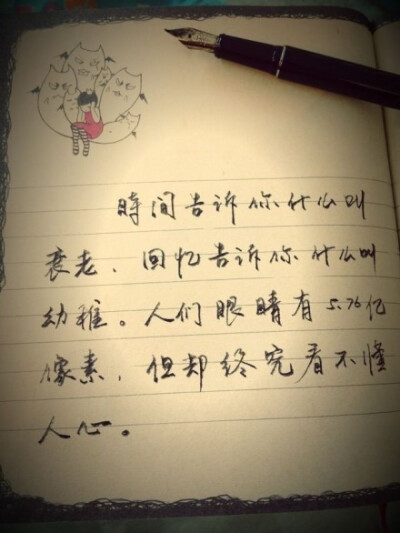 時间告诉你什么叫
衰老、回忆告诉你什么叫
幼稚。人们眼睛有5.76亿
像素，但却终究看不懂
人心。